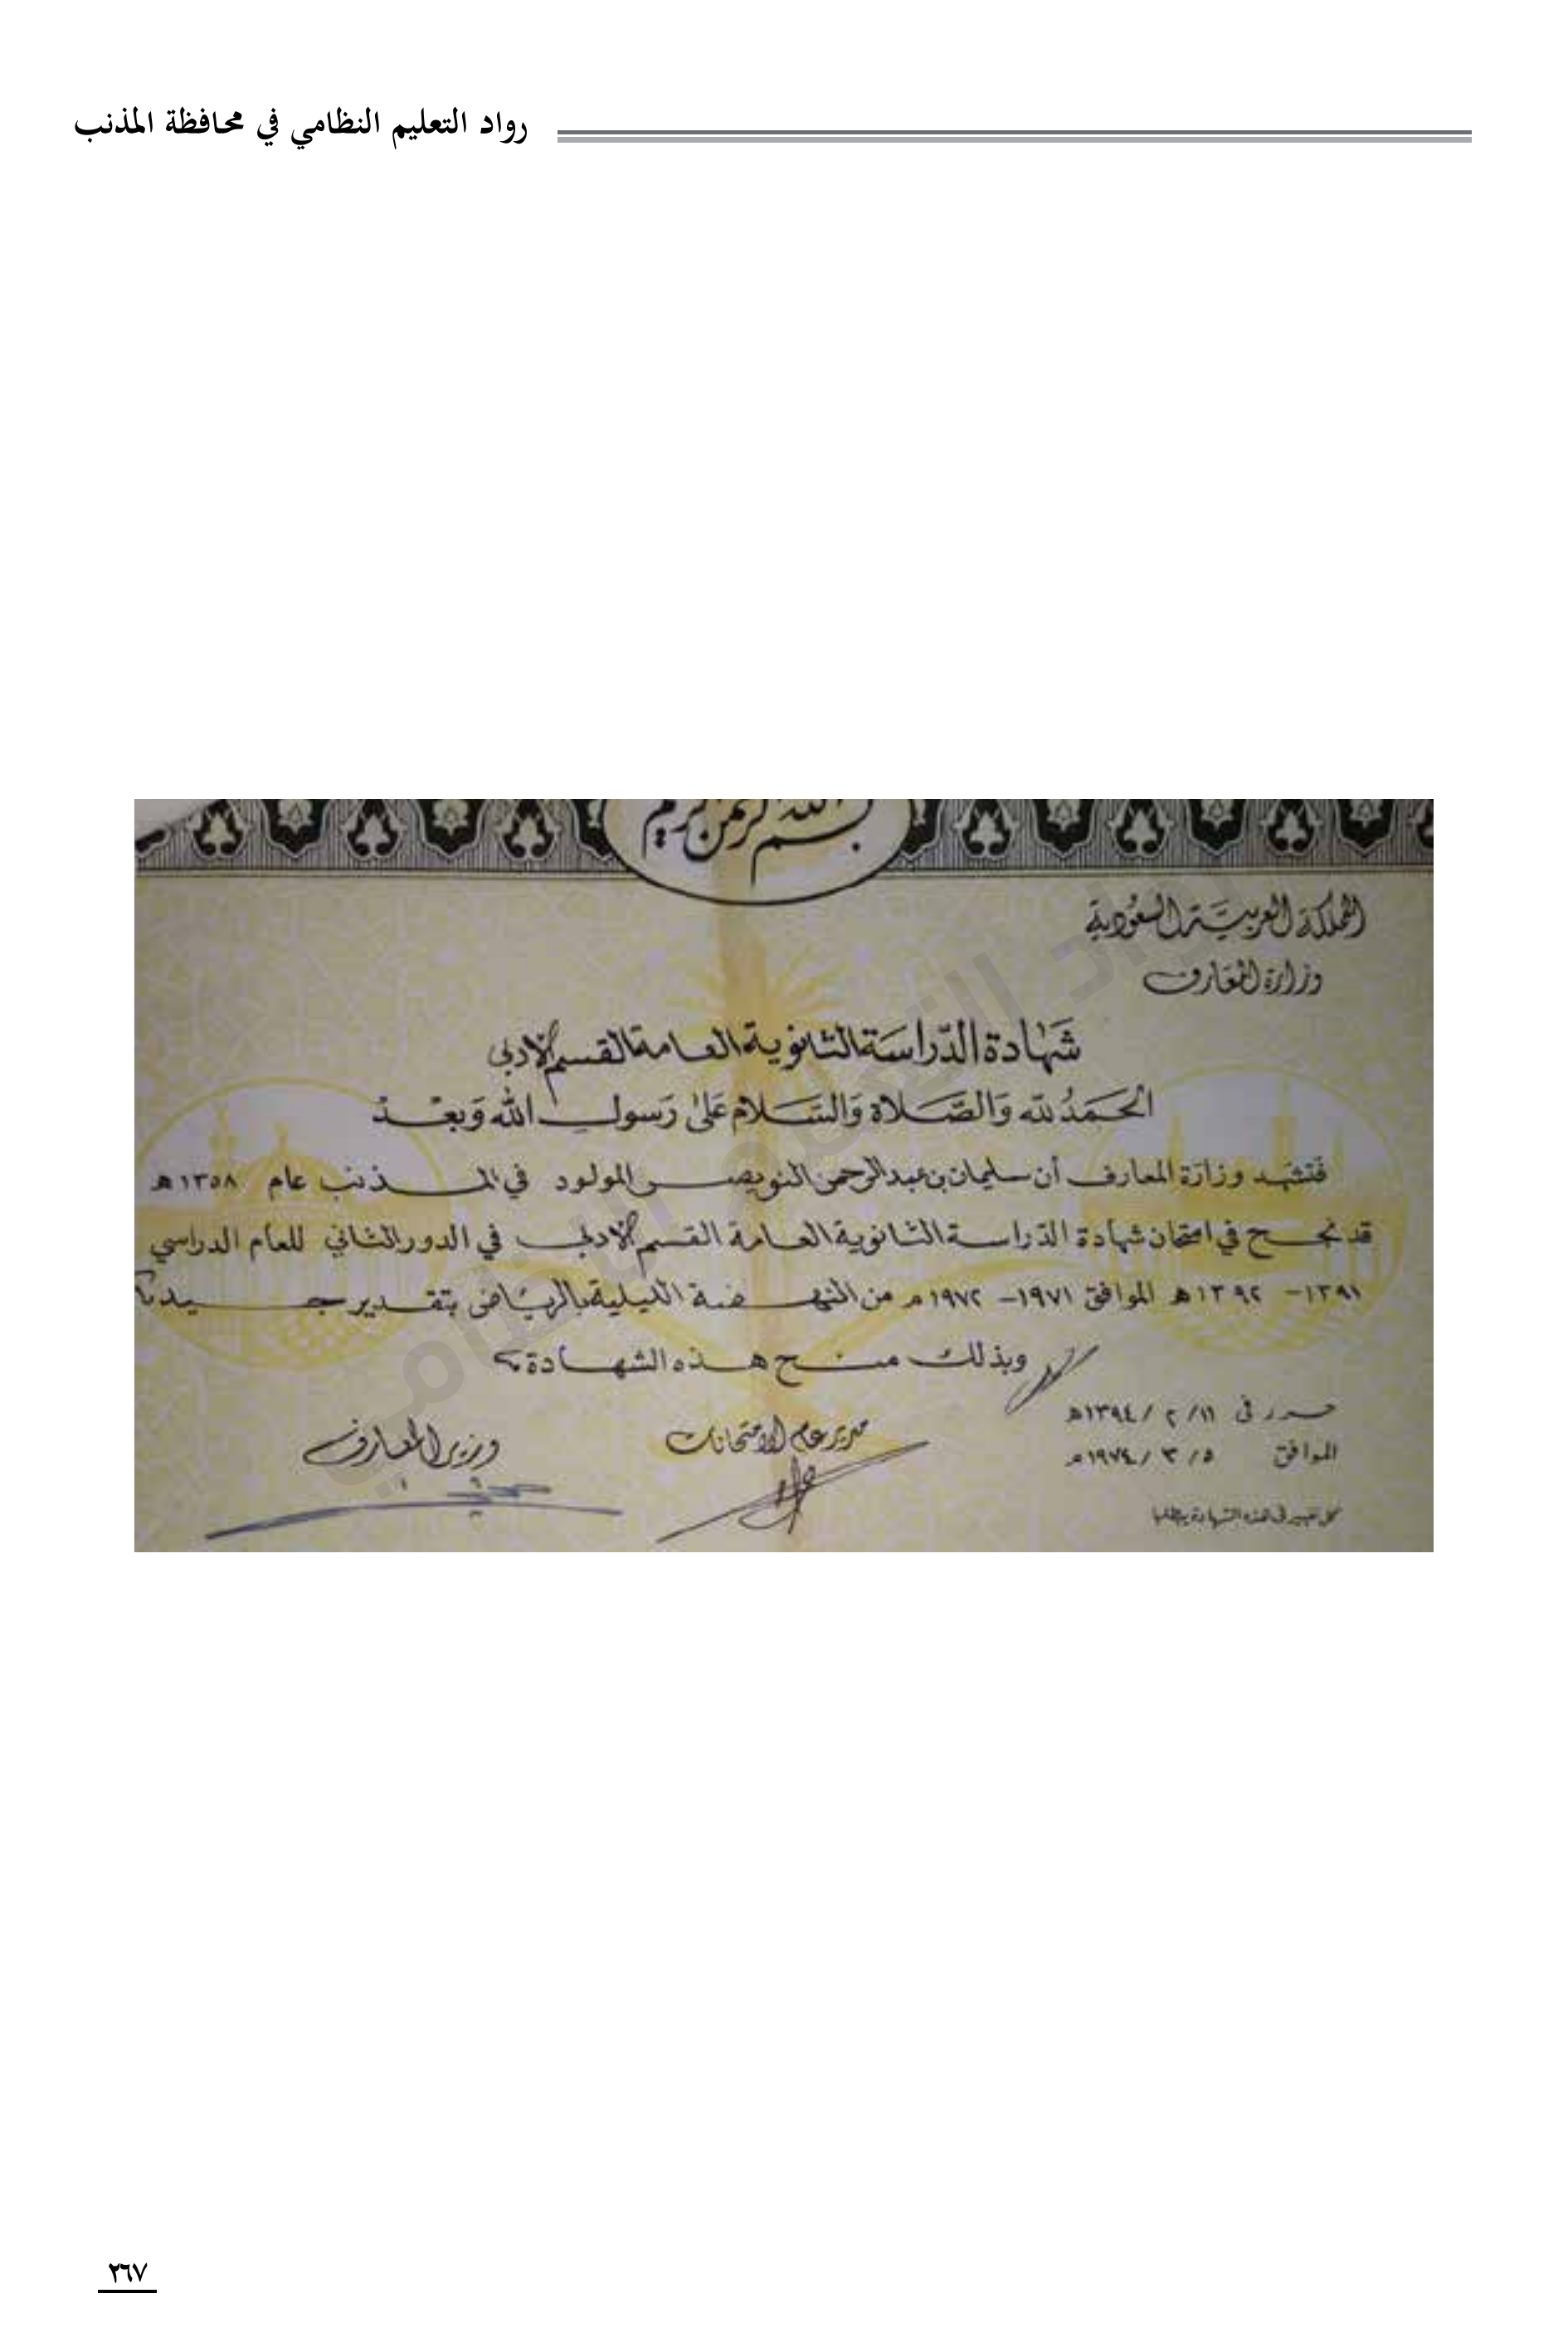 رواد التعليم النظامي في محافظة المذنب
بسم الله الرحمن الرحيم
المملكة العربية السعودية
وزارة المعارف
شهادة الدراسة الثانوية العامة القسم الأدبي
الحمد لله والصلاة والسلام على رسول الله وبعد
فتشهد وزارة المعارف أن سليمان بن عبدالرحمن النويصر المولود في المذنب عام ١٣٥٨هـ
قد نجح في امتحان شهادة الدراسة الثانوية العامة القسم الأدبي في الدور الثاني للعام الدراسي
١٣٩١ - ١٣٩٢هـ الموافق ١٩٧١ - ١٩٧٢م من النهضة الليلية بالرياض بتقدير جيد
وبذلك منح هذه الشهادة
حرر في ١١/ ٢ / ١٣٩٤هـ
الموافق ٥/ ٣ / ١٩٧٤م
مدير عام الامتحانات
وزير المعارف
كل تغيير في هذه الشهادة يبطلها
رواد التعليم النظامي
٢٦٧